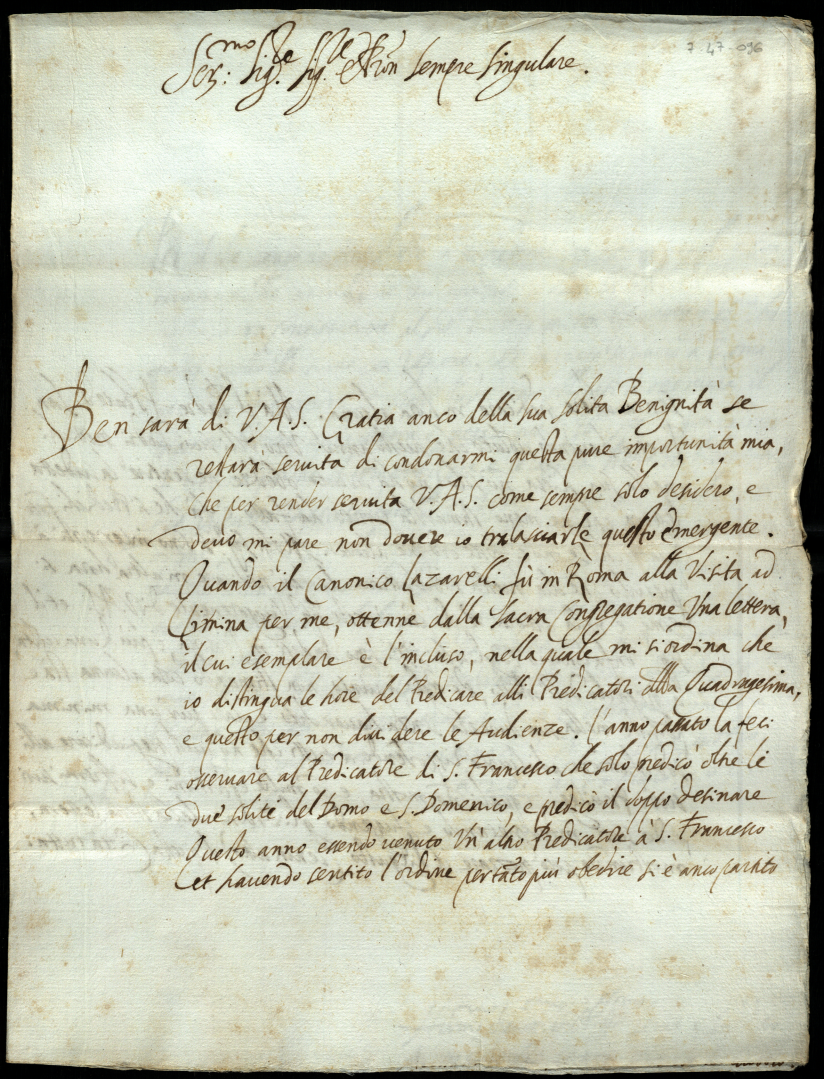 7 - 47 - 096
Ser:mo Sig.re Sig.re e Pron sempre singulare.
Ben sarà di V.A.S. Gratia anco della sua solita Benignità se
restarà servita di condonarmi questa pure importunità mia,
che per render servita V.A.S. come sempre solo desidero, e
devo mi pare non dovere io tralasciarle questo emergente.
Quando il Canonico Lazarelli fù in Roma alla Visita ad
Limina per me, ottenne dalla Sacra Congregatione Una lettera,
il cui esemplare è l'incluso, nella quale mi si ordina che
io distingua le hore del Predicare alli Predicatori della Quadragesima,
e questo per non dividere le Audienze. l'anno passato la feci
osservare al Predicatore di S. Francesco che solo predicò oltre le
due solite del Domo e S. Domenico, e predicò il doppo desinare
Questo anno essendo venuto Un' altro Predicatore à S. Francesco
et havendo sentito l'ordine per tãto più obedire si è anco partito